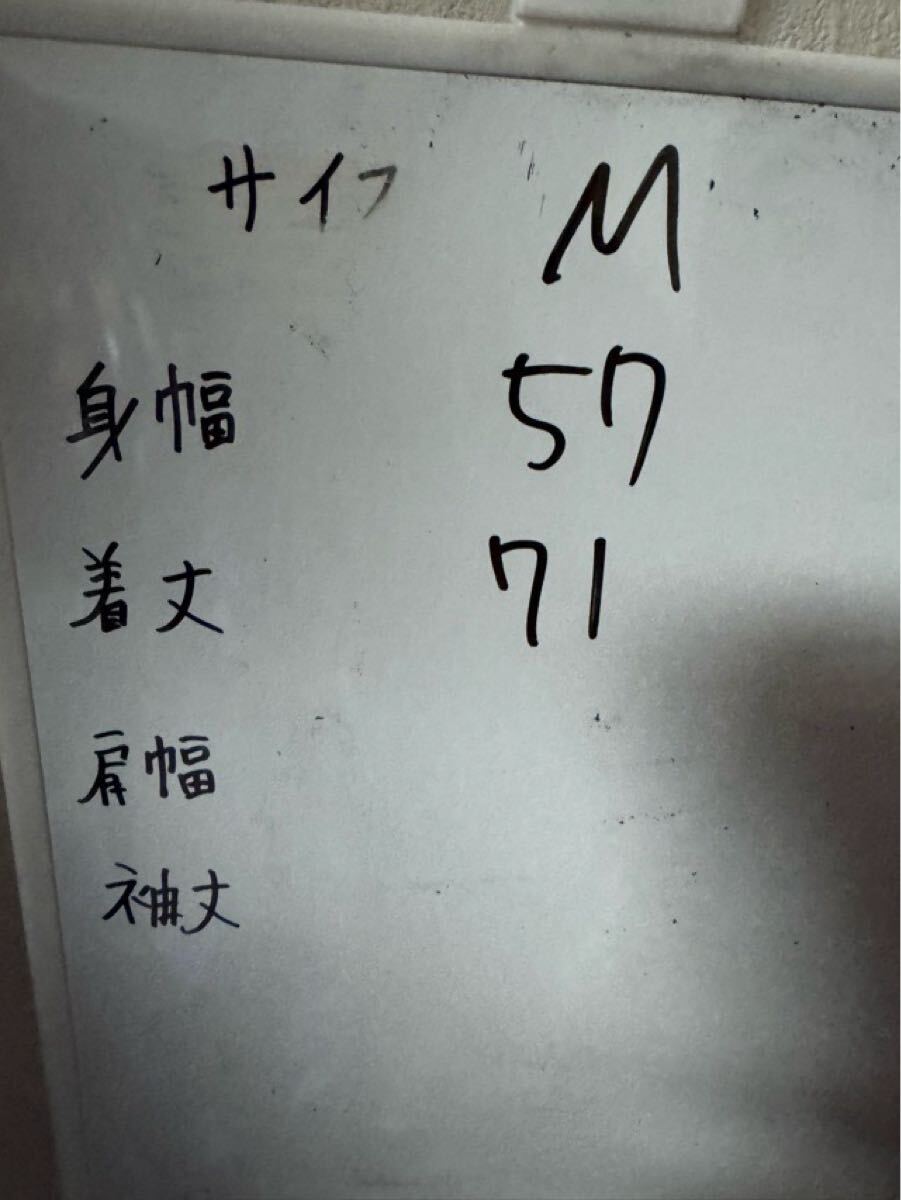 サイフ M
身幅 57
着丈 71
肩幅
袖丈